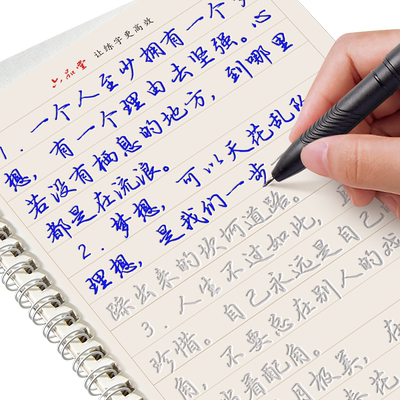 六品堂 让练字更高效
1. 一个人至少拥有一个
想，有一个理由去坚强。心
若没有栖息的地方，到哪里
都是在流浪。
2. 梦想，可以天花乱
理想，是我们一步
踩出来的坎坷道路。
3. 人生不过如此，且
珍惜。自己永远是自己
角，不要总在别人的戏
当着配角。
极美，在